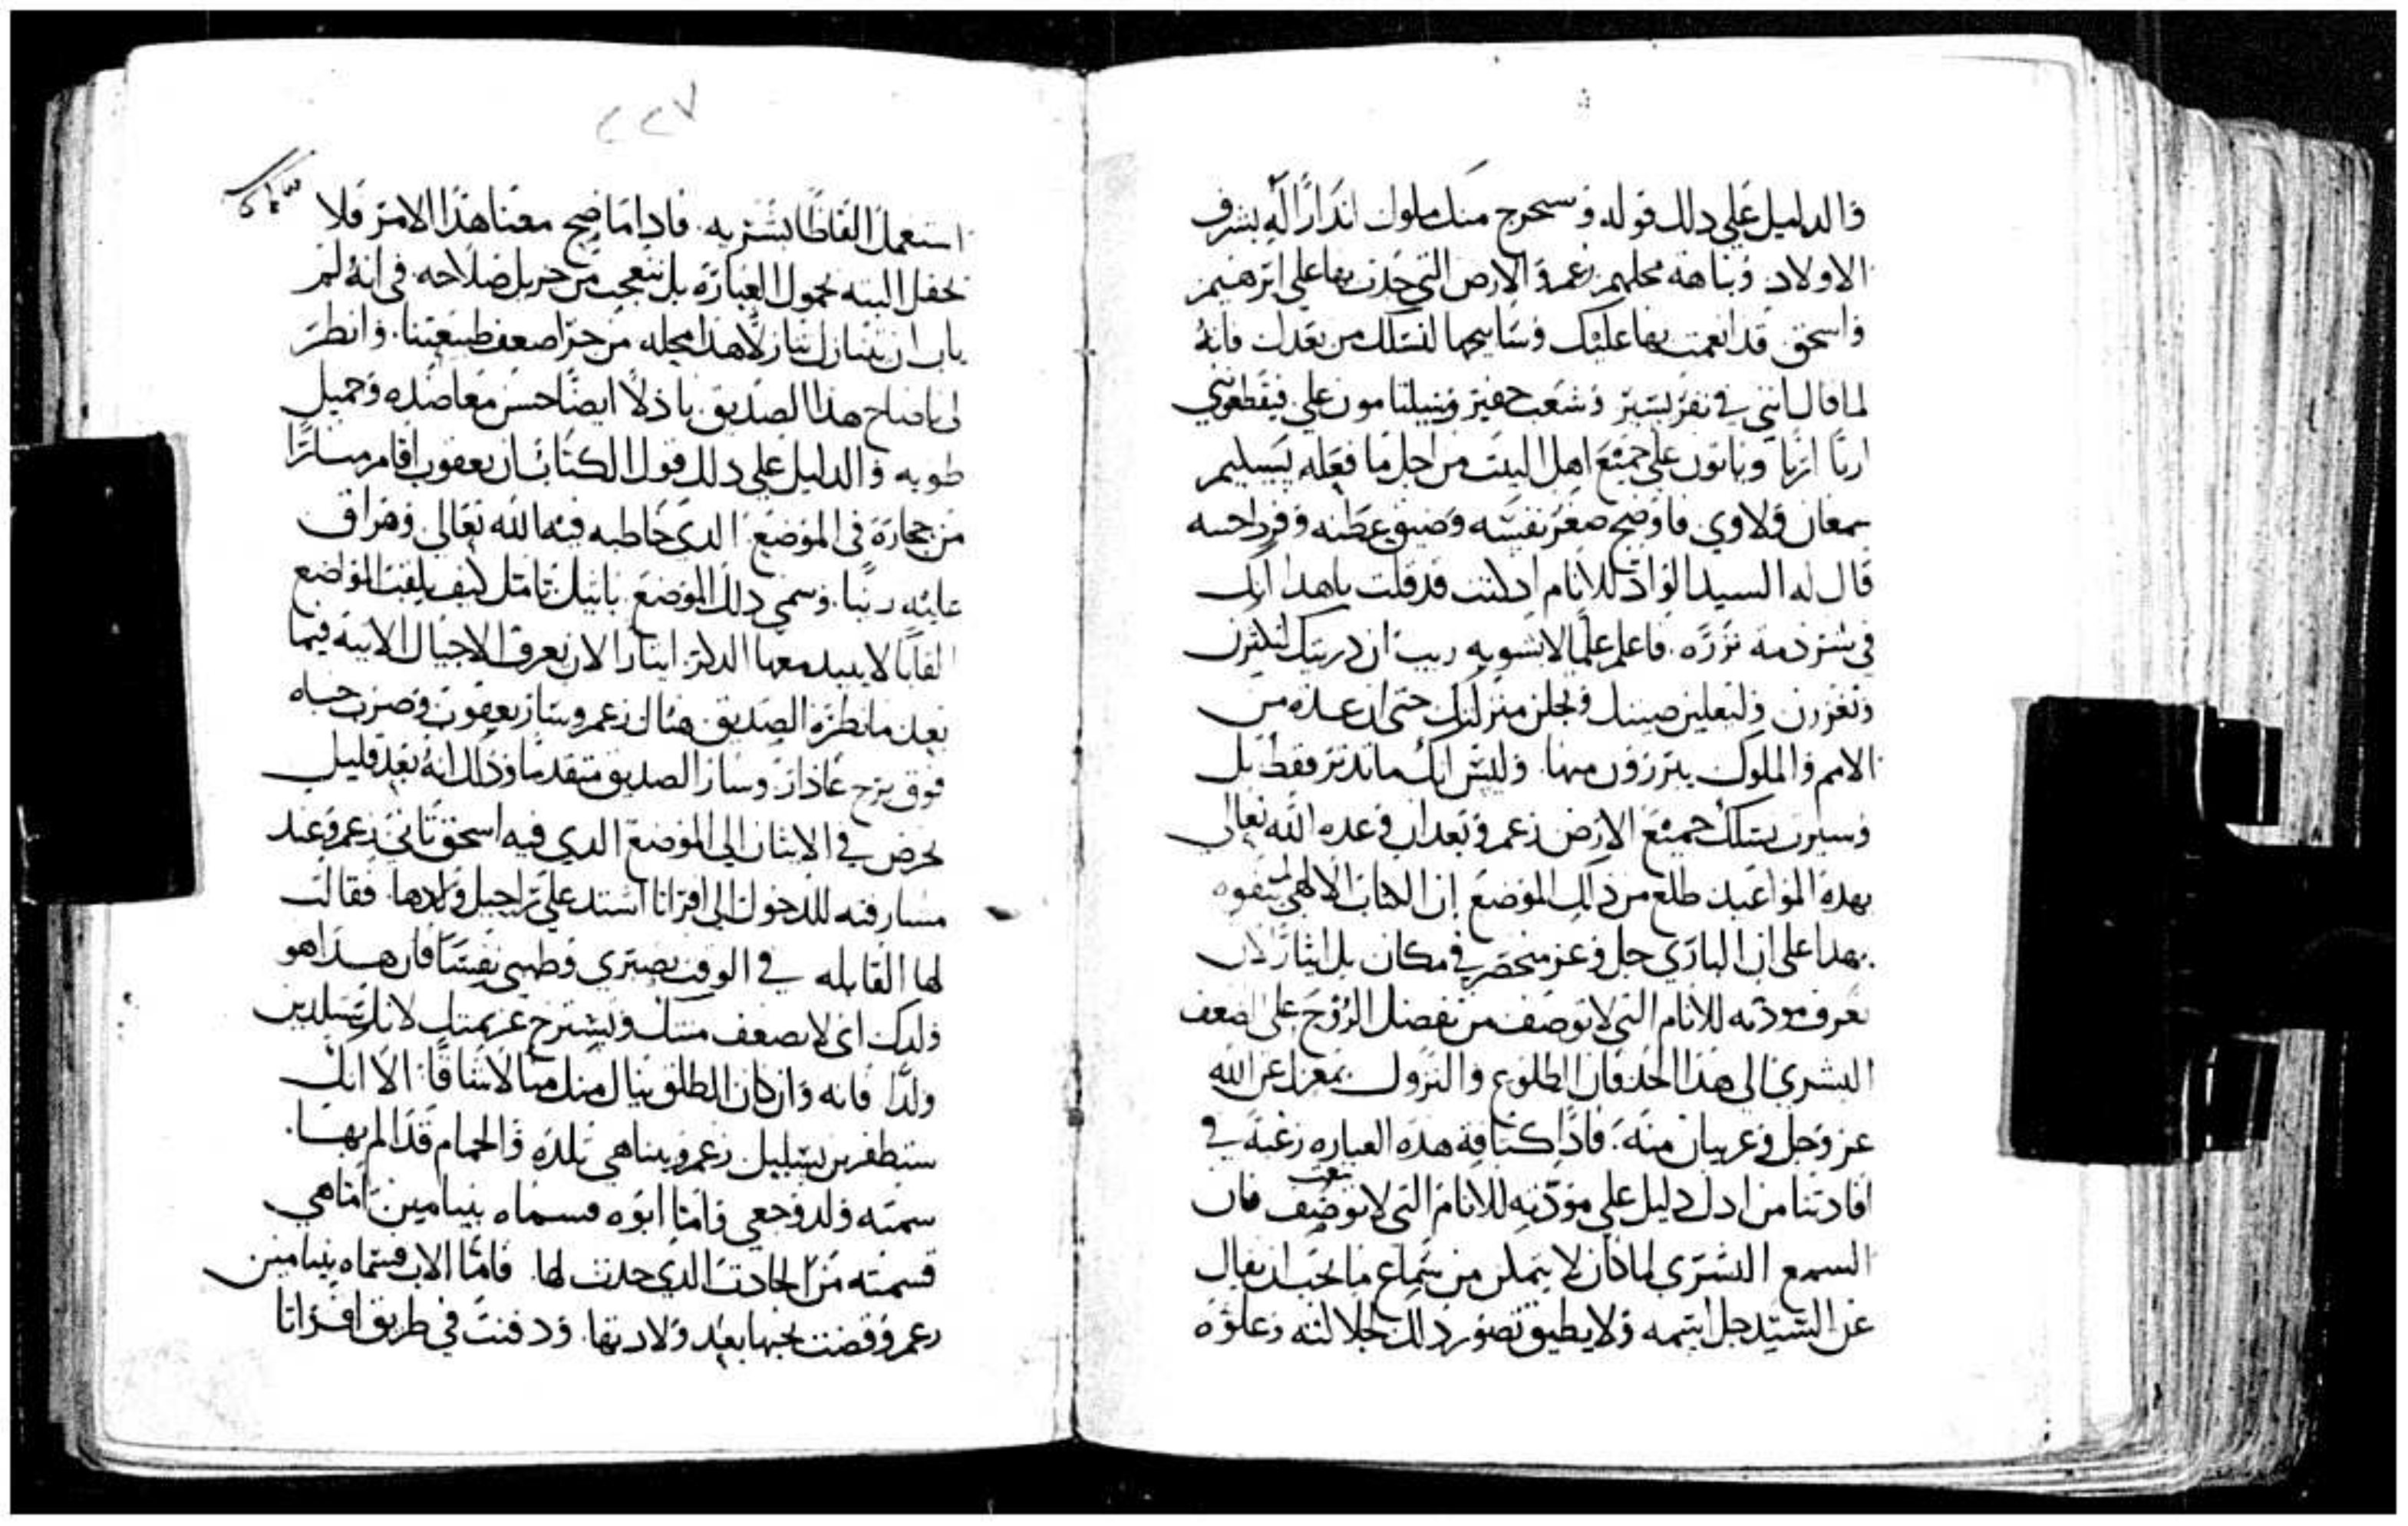 والدليل على دلك قوله وسيحرج منك ملوك اندارًا له بشرف
الاولاد ونباهة محلهم زعم والارض التي جدت بها على ابرهيم
واسحق قد انعمت بها عليك وسابيحها لنسلك من بعدك فانه
لما قال انني في نفر يسير وشعب حقير وسيلتامون علي فيقطعوني
اربًا اربًا وياتون على جميع اهل البيت من اجل ما فعله بسليم
سمعان ولاوي فاوضح صغر نفسه وضيق عطنه
قال له السيد الواد للانام ادكنت قد قلت ياهدا انك
في شردمه نزره فاعلم علمًا لا يشوبه ريب ان دريتك لتكثرن
وتغزرن وليعلين صيتك ولجلن منزلتك حتى ان عده من
الامم والملوك يبرزون منها وليس انك ماتدثر فقط بل
وسيرت نسلك جميع الارض زعم وبعد ان وعده الله تعالى
بهده المواعيد طلع من دلك الموضع ان الكتاب الالاهي لم يتفوه
بهدا على ان الباري جل وعز منحصر في مكان بل ايثارًا لان
نعرف مودته للانام التي لا توصف من تفضل الروح على ضعف
البشري الى هذا الحد فان الطلوع والنزول بمعزل عن الله
عز وجل وغريبان منه فادًا كثافة هده العباره رغبة في
افادتنا من ادل دليل على مودته للانام التي لا توصف فان
السمع البشري لما كان لا يتمكن من سماع ما يجب ان يقال
عن السيد جل اسمه ولا يطيق تصور دلك لجلالته وعلوه
٢٢٧
استعمل الفاظًا بشريه فادا ما صح معنا هذا الامر فلا
نحفل البته بحمول العباره بل نتعجب من جزيل صلاحه في انه لم
ياب ان يتنازل تنازلًا هدا محله من جرا ضعف طبيعتنا وانظر
لي ياصاح هدا الصديق باذلًا ايضًا حسن معاضده وجميل
طويه والدليل على دلك قول الكتاب ان يعقوب اقام منارًا
من حجارة في الموضع الدي خاطبه فيه الله تعالى وهراق
عليه زيتا وسمي دلك الموضع بابيل تامل كيف يلقب المواضع
القابًا لا يبيد معها الدكر ايثارًا لان تعرف الاجيال الاتيه فيما
بعد مانظره الصديق هناك زعم وسار يعقوب وضرب خباه
فوق برج عادار وسار الصديق متقدمًا ودلك انه بعد قليل
حرض في الاتيان الى الموضع الدي فيه اسحق ثاني زعم وعند
مسارفته للدخول الى افراثا اشتد على راحيل ولادها فقالت
لها القابله في الوقت تصبري وطيبي نفسًا فان هدا هو
ولدك اي لا تضعف منتك وتشترخ عزيمتك لانك ستلدين
ولدًا فانه وان كان الطلق ينال منك منالًا شاقًا الا انك
ستظفرين بسليل زعم وبيناهي تلده والحمام قد الم بها
سمته ولد وجعي واما ابوه فسماه بنيامين اما هي
فسمته من الحادت الدي حدت لها فاما الاب فسماه بنيامين
زعم وقضت نحبها بعد ولادتها ودفنت في طريق افراثا